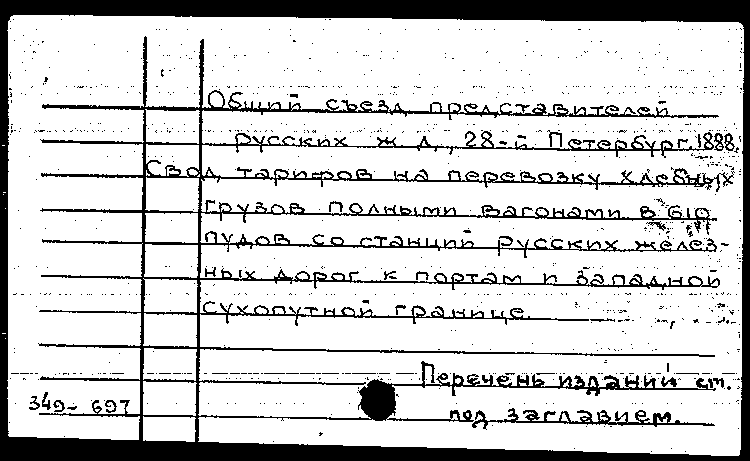 Общий съезд представителей
русских ж. д., 28-й Петербург. 1888.
Свод тарифов на перевозку хлебных
грузов полными вагонами в 610
пудов со станций русских желез-
ных дорог к портам и западной
сухопутной границе.
Перечень изданий см.
под заглавием.
349-697